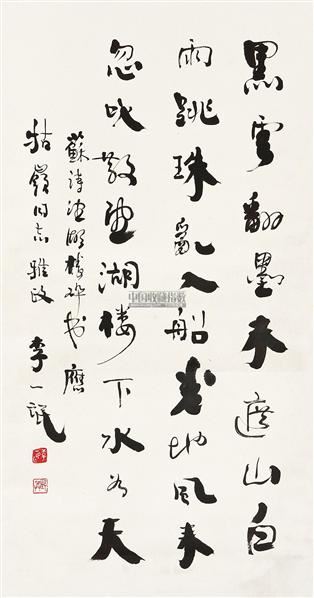 黑雲翻墨未遮山白
雨跳珠亂入船卷地風来
忽吹散望湖樓下水如天
蘇詩望湖樓醉書 應
嶺同志雅政 李一氓